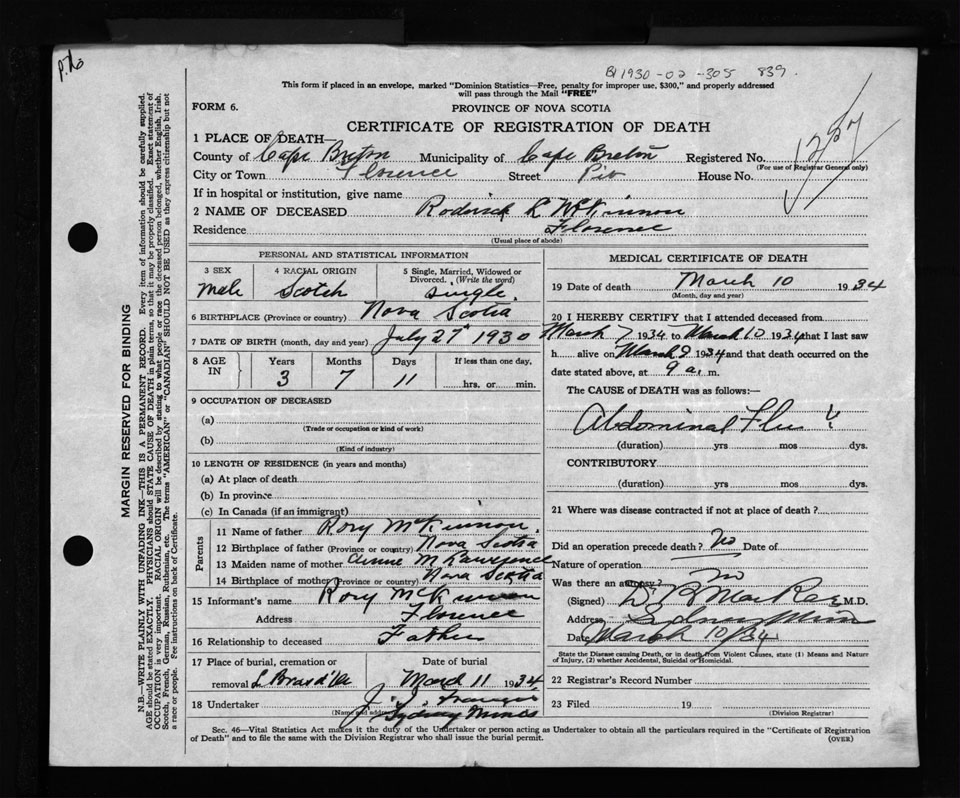 P.2o
B1930-02-305 839
This form if placed in an envelope, marked "Dominion Statistics—Free, penalty for improper use, $300," and properly addressed
will pass through the Mail "FREE"
FORM 6.
PROVINCE OF NOVA SCOTIA
CERTIFICATE OF REGISTRATION OF DEATH
1 PLACE OF DEATH—
County of Cape Breton Municipality of Cape Breton Registered No.
(For use of Registrar General only)
City or Town Florence Street House No.
If in hospital or institution, give name
2 NAME OF DECEASED Roderick L McKinnon
Residence Florence
(Usual place of abode)
PERSONAL AND STATISTICAL INFORMATION
3 SEX 4 RACIAL ORIGIN 5 Single, Married, Widowed or
Divorced. (Write the word)
Male Scotch Single.
6 BIRTHPLACE (Province or country) Nova Scotia
7 DATE OF BIRTH (month, day and year) July 27th 1930
8 AGE IN Years Months Days If less than one day,
3 7 11 hrs. or min.
9 OCCUPATION OF DECEASED
(a)
(Trade or occupation or kind of work)
(b)
(Kind of industry)
10 LENGTH OF RESIDENCE (in years and months)
(a) At place of death
(b) In province
(c) In Canada (if an immigrant)
Parents
11 Name of father Rory McKinnon.
12 Birthplace of father (Province or country) Nova Scotia
13 Maiden name of mother Annie M Lawrence
14 Birthplace of mother (Province or country) Nova Scotia
15 Informant's name Rory McKinnon
Address Florence
16 Relationship to deceased Father
17 Place of burial, cremation or Date of burial
removal L Bras d'Or March 11 1934
18 Undertaker J.
(Name and address) Sydney Mines
MEDICAL CERTIFICATE OF DEATH
19 Date of death March 10 1934
(Month, day and year)
20 I HEREBY CERTIFY that I attended deceased from
March 7 1934 to March 10 1934 that I last saw
h alive on March 9 1934 and that death occurred on the
date stated above, at 9 a. m.
The CAUSE of DEATH was as follows:—
Abdominal Flu
(duration) yrs mos dys.
CONTRIBUTORY
(duration) yrs mos dys.
21 Where was disease contracted if not at place of death?
Did an operation precede death? No Date of
Nature of operation
Was there an autopsy? No
(Signed) MacRae M.D.
Address Sydney Mines
Date March 10/34
State the Disease causing Death, or in death from Violent Causes, state (1) Means and Nature
of Injury, (2) whether Accidental, Suicidal or Homicidal.
22 Registrar's Record Number
23 Filed 19
(Division Registrar)
Sec. 46—Vital Statistics Act makes it the duty of the Undertaker or person acting as Undertaker to obtain all the particulars required in the "Certificate of Registration
of Death" and to file the same with the Division Registrar who shall issue the burial permit.
(OVER)
MARGIN RESERVED FOR BINDING
N.B.—WRITE PLAINLY WITH UNFADING INK—THIS IS A PERMANENT RECORD. Every item of information should be carefully supplied.
AGE should be stated EXACTLY. PHYSICIANS should STATE CAUSE OF DEATH in plain terms, so that it may be properly classified. Exact statement of
OCCUPATION is very important. RACIAL ORIGIN will be described by stating to what people or race the deceased person belonged, whether English, Irish,
Scotch, French, German, Russian, Ruthenian, etc. The terms "AMERICAN" or "CANADIAN" SHOULD NOT BE USED as they express citizenship but not
a race or people. See instructions on back of Certificate.